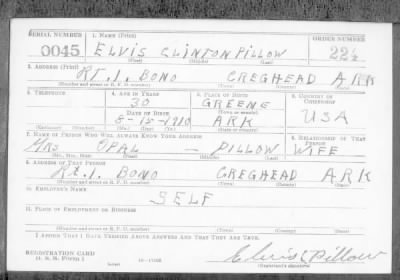 SERIAL NUMBER 1. NAME (Print) ORDER NUMBER
0045 ELVIS CLINTON PILLOW 22½
(First) (Middle) (Last)
2. ADDRESS (Print)
RT. 1. BONO CREGHEAD ARK
(Number and street or R. F. D. number) (Town) (County) (State)
3. TELEPHONE 4. AGE IN YEARS 5. PLACE OF BIRTH 6. COUNTRY OF CITIZENSHIP
30 GREENE
DATE OF BIRTH (Town or county) USA
8-15-1910 ARK
(Exchange) (Number) (Mo.) (Day) (Yr.) (State or country)
7. NAME OF PERSON WHO WILL ALWAYS KNOW YOUR ADDRESS 8. RELATIONSHIP OF THAT PERSON
MRS OPAL — PILLOW WIFE
(Mr., Mrs., Miss) (First) (Middle) (Last)
9. ADDRESS OF THAT PERSON
RT. 1. BONO CREGHEAD ARK
(Number and street or R. F. D. number) (Town) (County) (State)
10. EMPLOYER'S NAME
SELF
11. PLACE OF EMPLOYMENT OR BUSINESS
(Number and street or R. F. D. number) (Town) (County) (State)
I AFFIRM THAT I HAVE VERIFIED ABOVE ANSWERS AND THAT THEY ARE TRUE.
REGISTRATION CARD Elvis C Pillow
D. S. S. Form 1 (Registrant's signature)